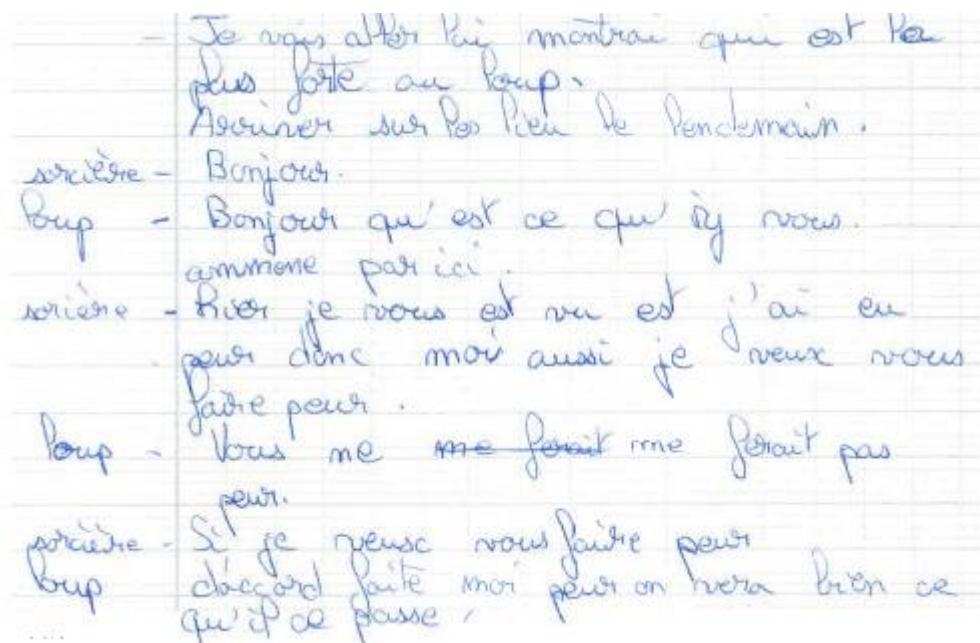 - Je vais aller lui montrai qui est la
plus forte au loup.
Arriver sur les lieu le lendemain.
sorcière - Bonjour.
loup - Bonjour qu'est ce qu'iy vous.
ammene par ici.
sorière - hier je vous est vu est j'ai eu
peur donc moi aussi je veux vous
faire peur.
loup - Vous ne me ferait me ferait pas
peur.
sorcière - Si je veux vous faire peur
loup d'accord faite moi peur on vera bien ce
qu'il ce passe.
....